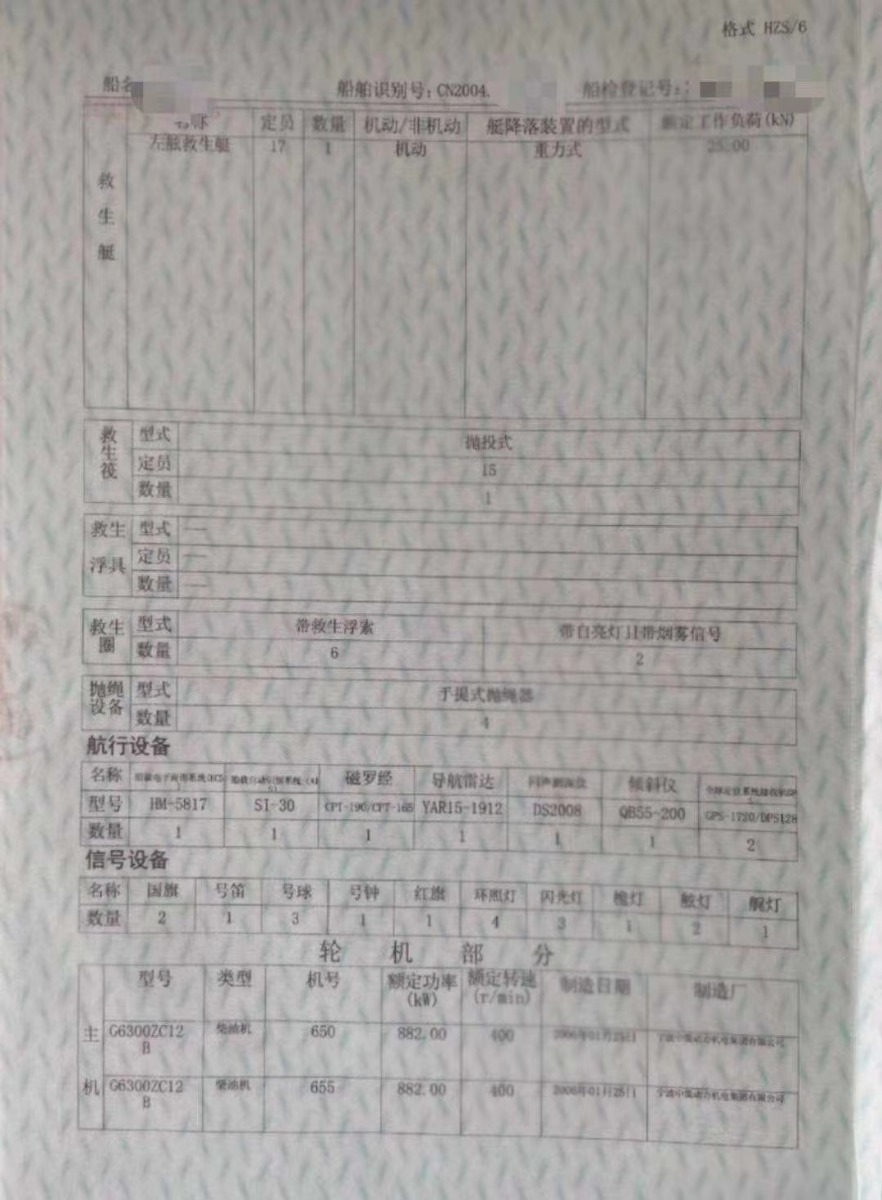 格式 HZS/6
船名
船舶识别号：CN2004.
船检登记号：
名称 定员 数量 机动/非机动 艇降落装置的型式 额定工作负荷(kN)
救生艇
左舷救生艇 17 1 机动 重力式 25.00
救生筏
型式 抛投式
定员 15
数量 1
救生浮具
型式 —
定员 —
数量 —
救生圈
型式 带救生浮索 带自亮灯 带烟雾信号
数量 6 2
抛绳设备
型式 手提式抛绳器
数量 4
航行设备
名称 磁罗经 导航雷达 回声测深仪 倾斜仪
型号 HM-5817 SI-30 CPT-190/CPT-165 YAR15-1912 DS2008 QB55-200 GPS-1720/DPS128
数量 1 1 1 1 1 1 2
信号设备
名称 国旗 号笛 号球 号钟 红旗 环照灯 闪光灯 桅灯 舷灯 艉灯
数量 2 1 3 1 1 4 3 1 2 1
轮机部分
型号 类型 机号 额定功率(kW) 额定转速(r/min) 制造日期 制造厂
主机
G6300ZC12B 柴油机 650 882.00 400 2006年01月25日
G6300ZC12B 柴油机 655 882.00 400 2006年01月25日